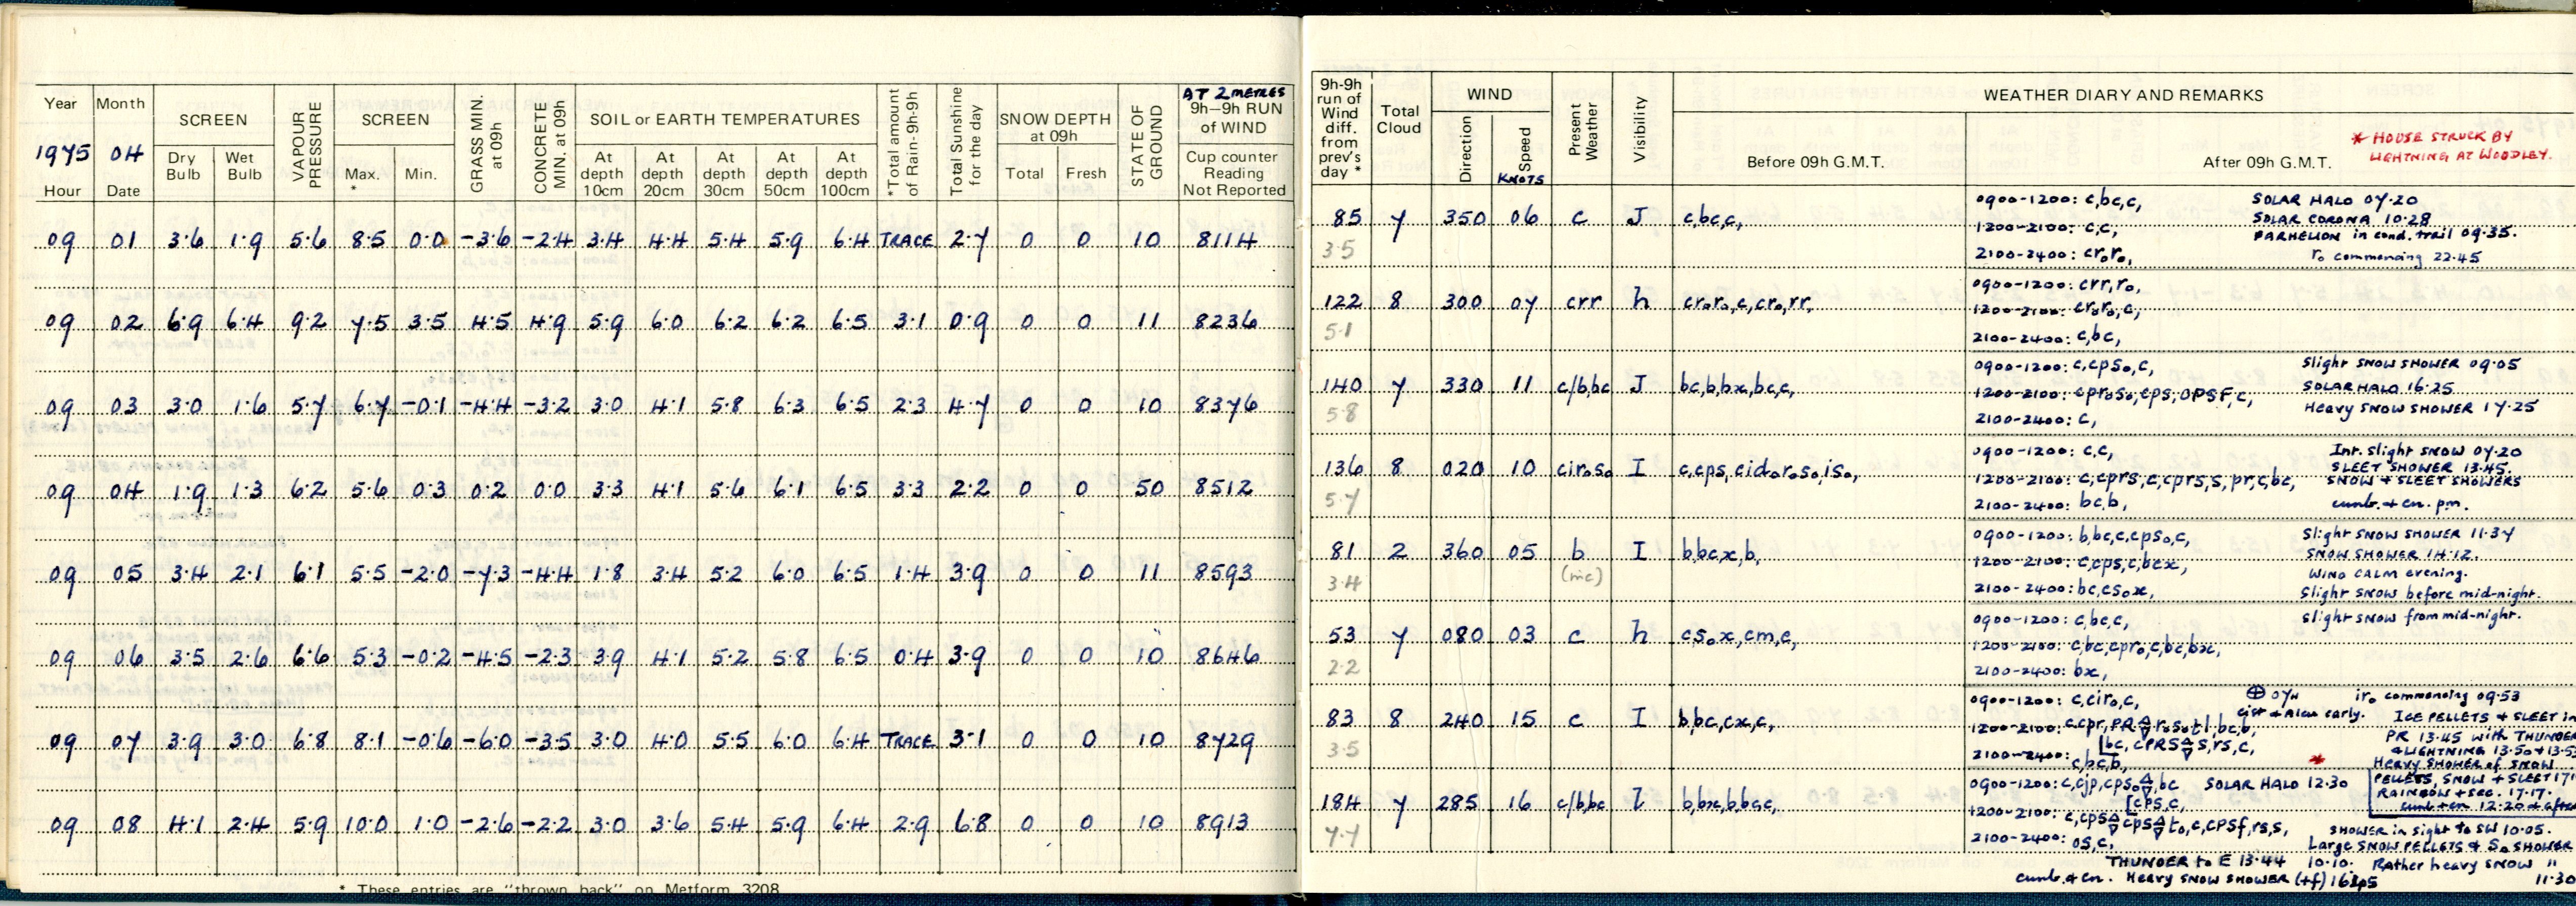 Year Month SCREEN VAPOUR PRESSURE SCREEN GRASS MIN. at 09h CONCRETE MIN. at 09h SOIL or EARTH TEMPERATURES *Total amount of Rain-9h-9h Total Sunshine for the day SNOW DEPTH at 09h STATE OF GROUND AT 2 METRES 9h-9h RUN of WIND
1975 04 Dry Bulb Wet Bulb Max. * Min. At depth 10cm At depth 20cm At depth 30cm At depth 50cm At depth 100cm Total Fresh Cup counter Reading Not Reported
Hour Date
09 01 3.6 1.9 5.6 8.5 0.0 -3.6 -2.4 3.4 4.4 5.4 5.9 6.4 TRACE 2.7 0 0 10 8114
09 02 6.9 6.4 9.2 7.5 3.5 4.5 4.9 5.9 6.0 6.2 6.2 6.5 3.1 0.9 0 0 11 8236
09 03 3.0 1.6 5.7 6.7 -0.1 -4.4 -3.2 3.0 4.1 5.8 6.3 6.5 2.3 4.7 0 0 10 8376
09 04 1.9 1.3 6.2 5.6 0.3 0.2 0.0 3.3 4.1 5.6 6.1 6.5 3.3 2.2 0 0 50 8512
09 05 3.4 2.1 6.1 5.5 -2.0 -7.3 -4.4 1.8 3.4 5.2 6.0 6.5 1.4 3.9 0 0 11 8593
09 06 3.5 2.6 6.6 5.3 -0.2 -4.5 -2.3 3.9 4.1 5.2 5.8 6.5 0.4 3.9 0 0 10 8646
09 07 3.9 3.0 6.8 8.1 -0.6 -6.0 -3.5 3.0 4.0 5.5 6.0 6.4 TRACE 3.1 0 0 10 8729
09 08 4.1 2.4 5.9 10.0 1.0 -2.6 -2.2 3.0 3.6 5.4 5.9 6.4 2.9 6.8 0 0 10 8913
* These entries are "thrown back" on Metform 3208
9h-9h run of Wind diff. from prev's day * Total Cloud WIND Direction Speed KNOTS Present Weather Visibility WEATHER DIARY AND REMARKS
* HOUSE STRUCK BY
LIGHTNING AT WOODLEY.
Before 09h G.M.T. After 09h G.M.T.
85 7 350 06 c J c,bc,c, 0900-1200: c,bc,c, SOLAR HALO 07.20
SOLAR CORONA 10.28
1200-2100: c,c, PARHELION in cond. trail 09.35.
3.5 2100-2400: cr₀r₀, r₀ commencing 22.45
122 8 300 07 crr h cr₀r₀,c,cr₀,rr, 0900-1200: crr,r₀,
1200-2100: cr₀r₀,c,
5.1 2100-2400: c,bc,
140 7 330 11 c/b,bc J bc,b,bx,bc,c, 0900-1200: c,cps₀,c, Slight SNOW SHOWER 09.05
1200-2100: cpr₀s₀,cps,OPSF,c, SOLAR HALO 16.25
5.8 2100-2400: c, Heavy SNOW SHOWER 17.25
136 8 020 10 cir₀s₀ I c,cps,cid₀r₀s₀,is₀, 0900-1200: c,c, Int. slight SNOW 07.20
SLEET SHOWER 13.45.
1200-2100: c,cprs,c,cprs,s,pr,c,bc, SNOW + SLEET SHOWERS
5.7 2100-2400: bc,b, cumb.+cn. pm.
81 2 360 05 b I b,bcx,b, 0900-1200: b,bc,c,cps₀,c, Slight SNOW SHOWER 11.37
(mc) 1200-2100: c,cps,c,bcx, SNOW SHOWER 14.12.
WIND CALM evening.
3.4 2100-2400: bc,cs₀x, Slight SNOW before mid-night.
53 7 080 03 c h cs₀x,cm,c, 0900-1200: c,bc,c, Slight SNOW from mid-night.
1200-2100: c,bc,cpr₀,c,bc,bx,
2.2 2100-2400: bx,
83 8 240 15 c I b,bc,cx,c, 0900-1200: c,cir₀,c, ir₀ commencing 09.53
early. ICE PELLETS + SLEET in
1200-2100: PR 13.45 with THUNDER
+LIGHTNING 13.50+13.5
3.5 2100-2400: c,bc,b, * Heavy SHOWER of SNOW
184 7 285 16 c/b,bc I b,bx,b,bc,c, 0900-1200: SOLAR HALO 12.30 PELLETS, SNOW + SLEET 171
RAINBOW + SEC. 17.17.
cumb+cn 12.20 + after
1200-2100: SHOWER in sight to SW 10.05.
7.7 2100-2400: os,c, Large SNOW PELLETS & S₀ SHOWER
THUNDER to E 13.44 10.10. Rather heavy SNOW "
cumb.+cn. Heavy SNOW SHOWER (+f) 11.30